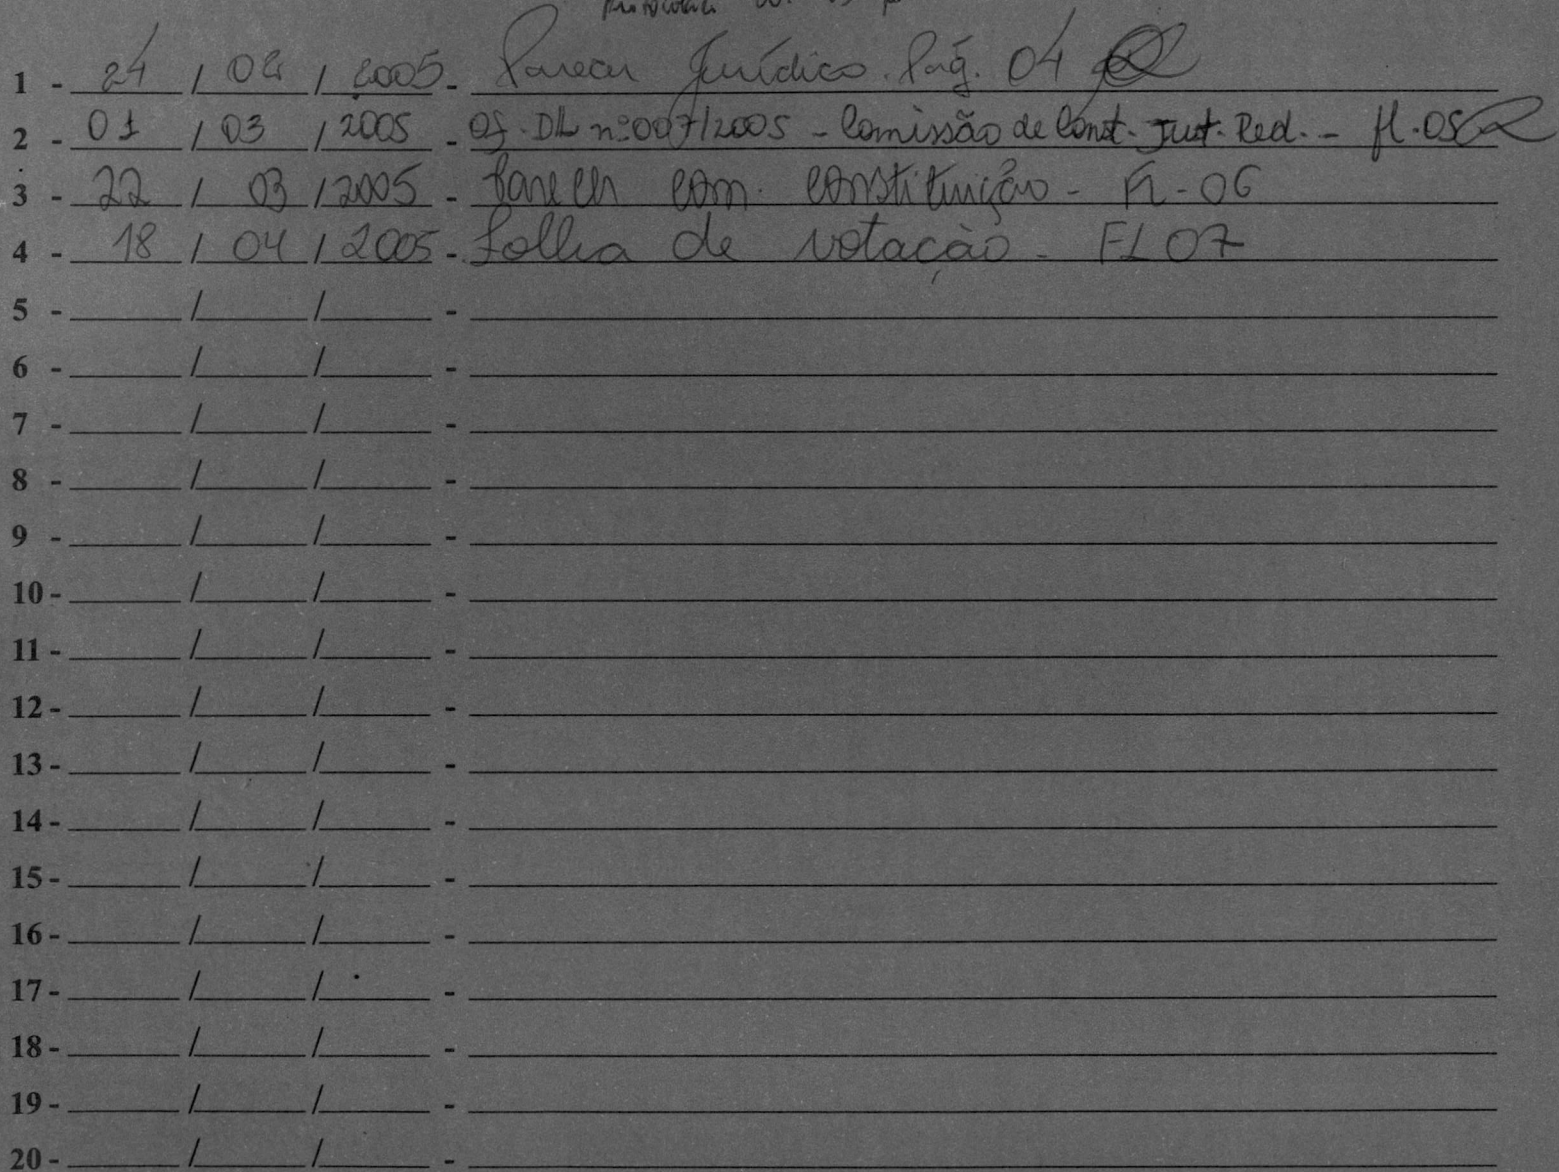 1 - 24 / 02 / 2005 - Parecer Jurídico. Pág. 04
2 - 01 / 03 / 2005 - Of. DL nº 007/2005 - Comissão de Const. Just. Red. - fl. 05
3 - 22 / 03 / 2005 - Parecer com. constituição - Fl - 06
4 - 18 / 04 / 2005 - Folha de votação - FL 07
5 - / / -
6 - / / -
7 - / / -
8 - / / -
9 - / / -
10 - / / -
11 - / / -
12 - / / -
13 - / / -
14 - / / -
15 - / / -
16 - / / -
17 - / / -
18 - / / -
19 - / / -
20 - / / -